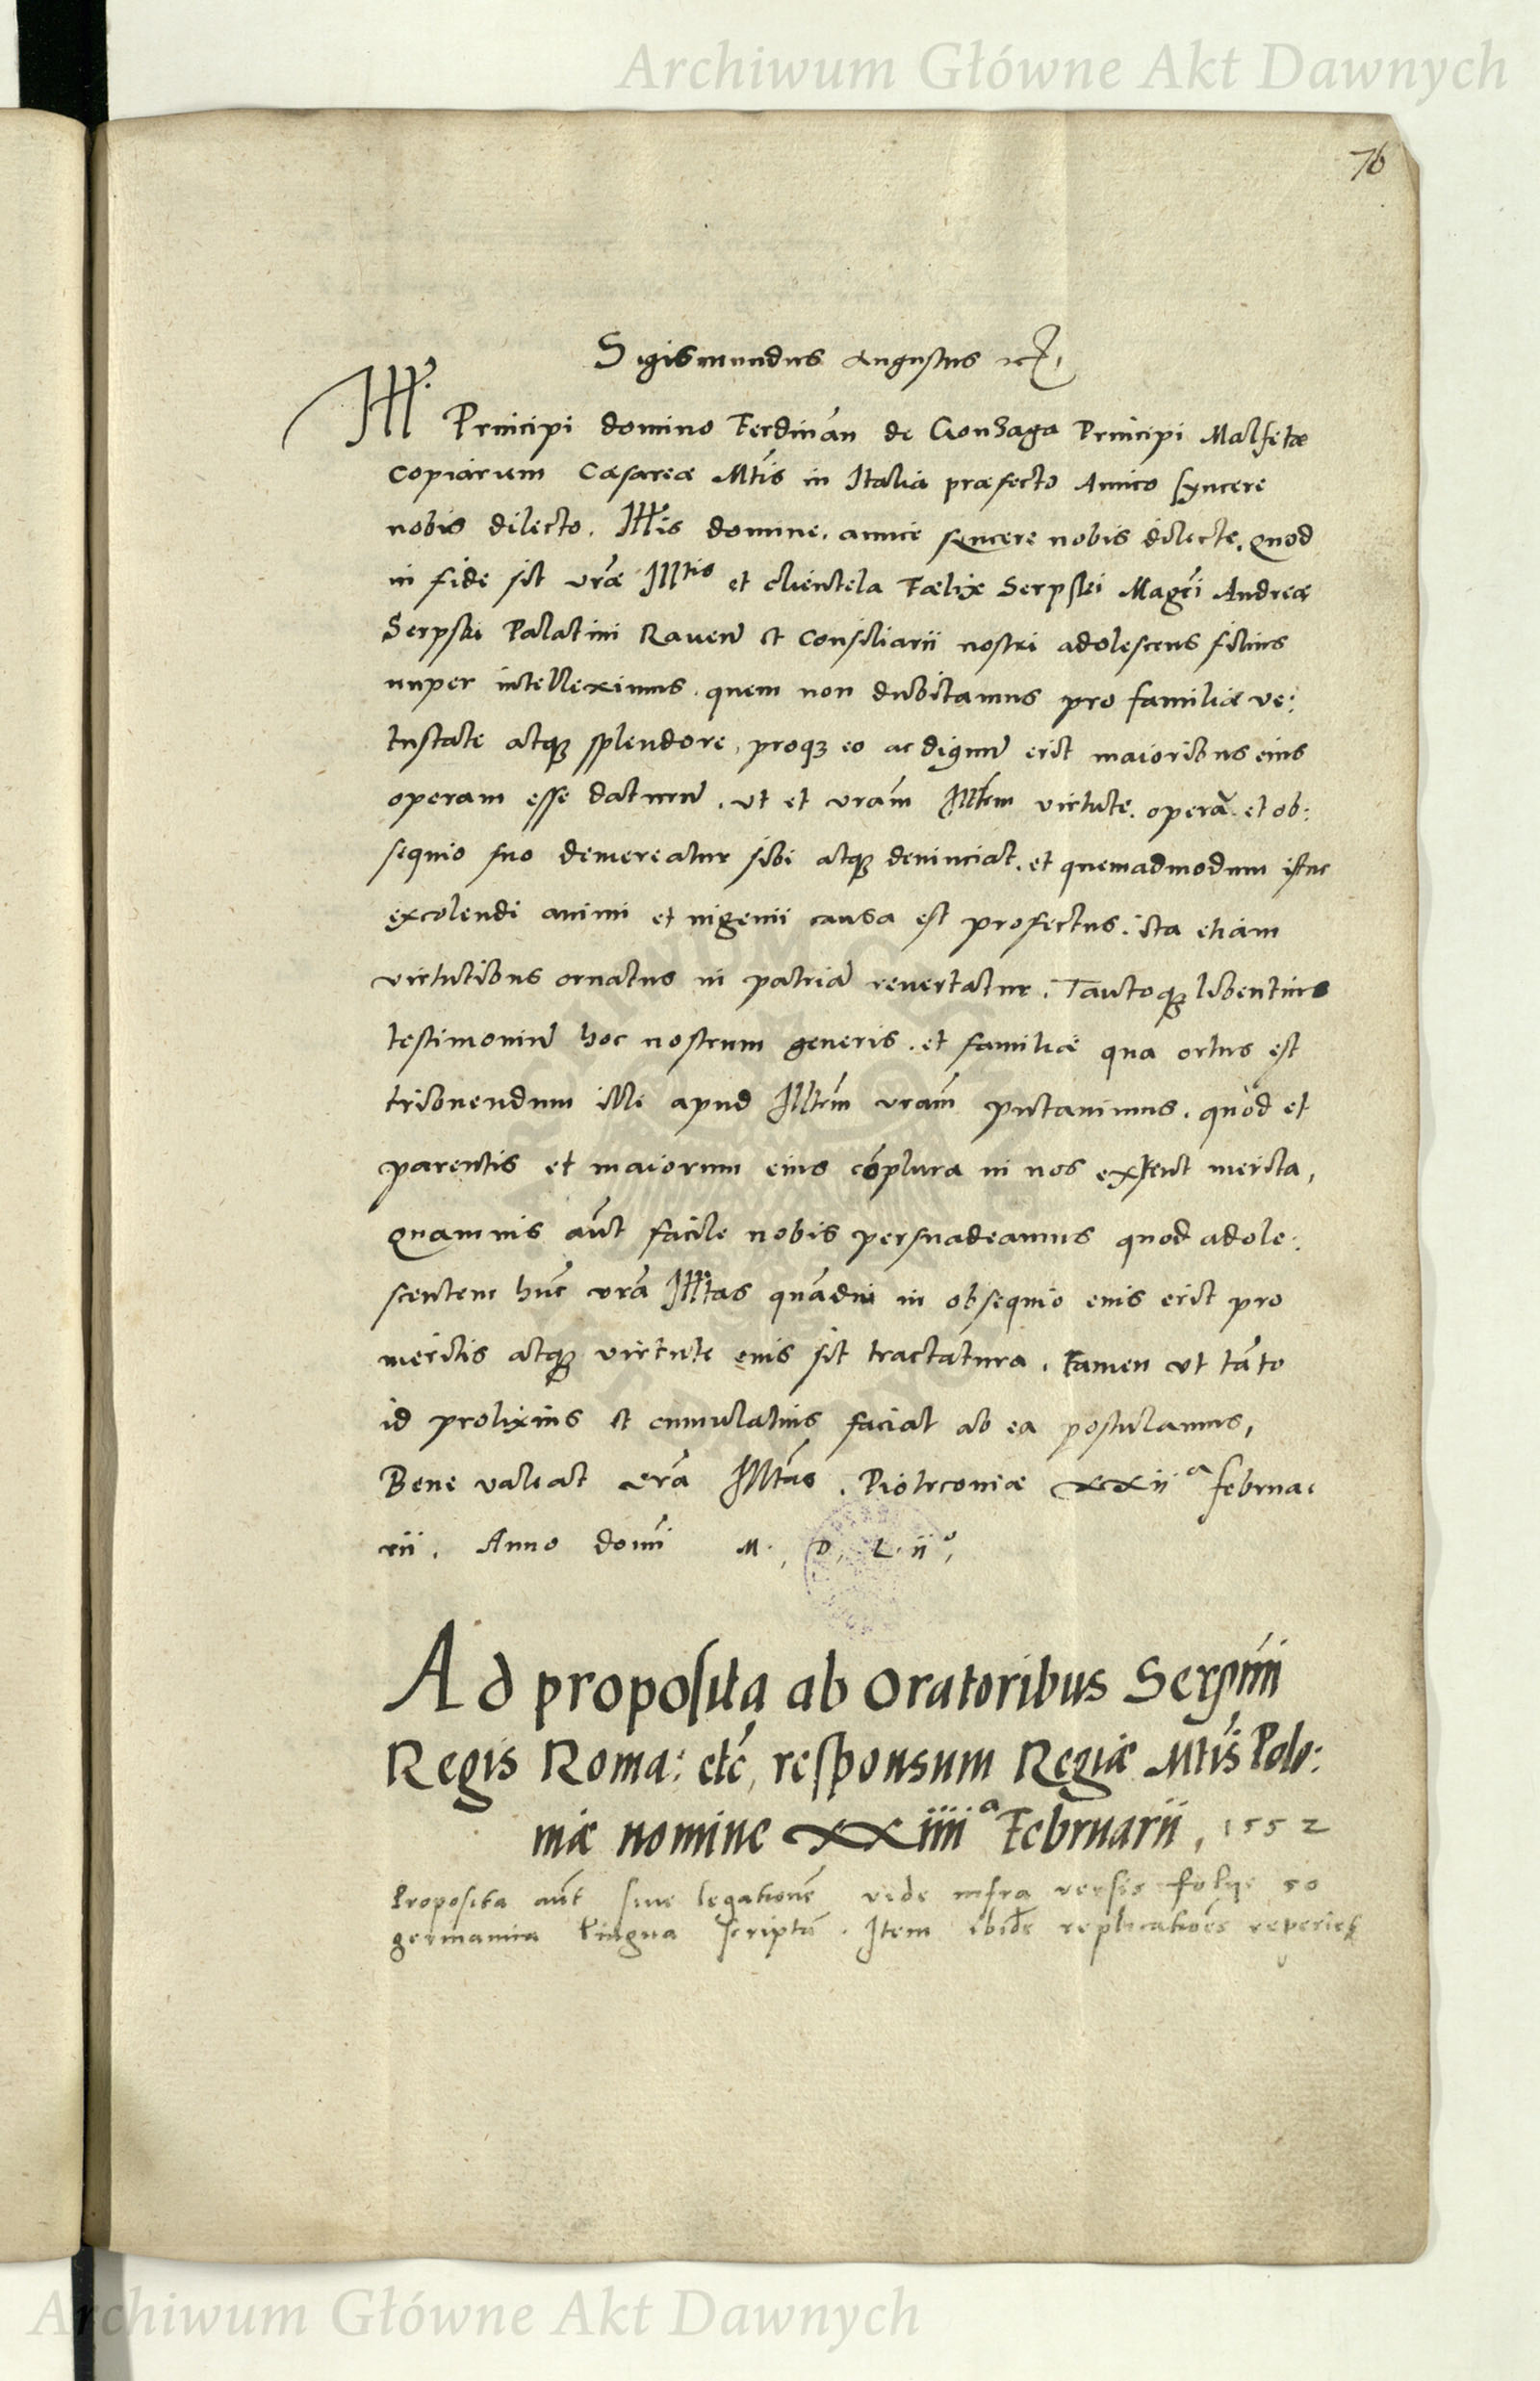 Archiwum Główne Akt Dawnych
76
Sigismundus Augustus etc.
Ill. Principi domino Ferdinan̄ de Gonzaga Principi Malfetæ
copiarum Cæsareæ Mtis in Italia præfecto Amico syncere
nobis dilecto. Illis domine. amice syncere nobis dilecte. quod
in fide sit vræ Illtis et clientela Fælix Serpski Magci Andreæ
Serpski Palatini Raven̄ et consiliarii nostri adolescens filius
nuper intelleximus. quem non dubitamus pro familiæ ve:
tustate atq; splendore, proq; eo ac dignū erit maioribus eius
operam esse daturū. ut et vram Illtem virtute. operā. et ob:
sequio suo demereatur sibi atq; deuinciat. et quemadmodum istuc
excolendi animi et ingenii causa est profectus. ita etiam
virtutibus ornatus in patriā reuertatur. Tantoq; libentius
testimoniū hoc nostrum generis. et familiæ qua ortus est
tribuendum illi apud Illtem vram putauimus. quòd et
parentis et maiorum eius cōplura in nos extent merita,
Quamuis aūt facile nobis persuadeamus quod adole:
scentem hūc vrā Illtas quādiu in obsequio eius erit pro
meritis atq; virtute eius sit tractatura. Tamen ut tāto
id prolixius et cumulatius faciat ab ea postulamus,
Bene valeat vrā Illtas. Piotrconiæ xxii a februa:
rii. Anno domī M. D. L. ii o,
Ad proposita ab Oratoribus Sermi
Regis Roma: etc, responsum Regiæ Mtis Polo:
niæ nomine xxiiii a Februarii, 1552
Proposita aūt siue legationē vide infra versis folys 50
germanica lingua scriptā. Item ibidē replicationes reperies
Archiwum Główne Akt Dawnych